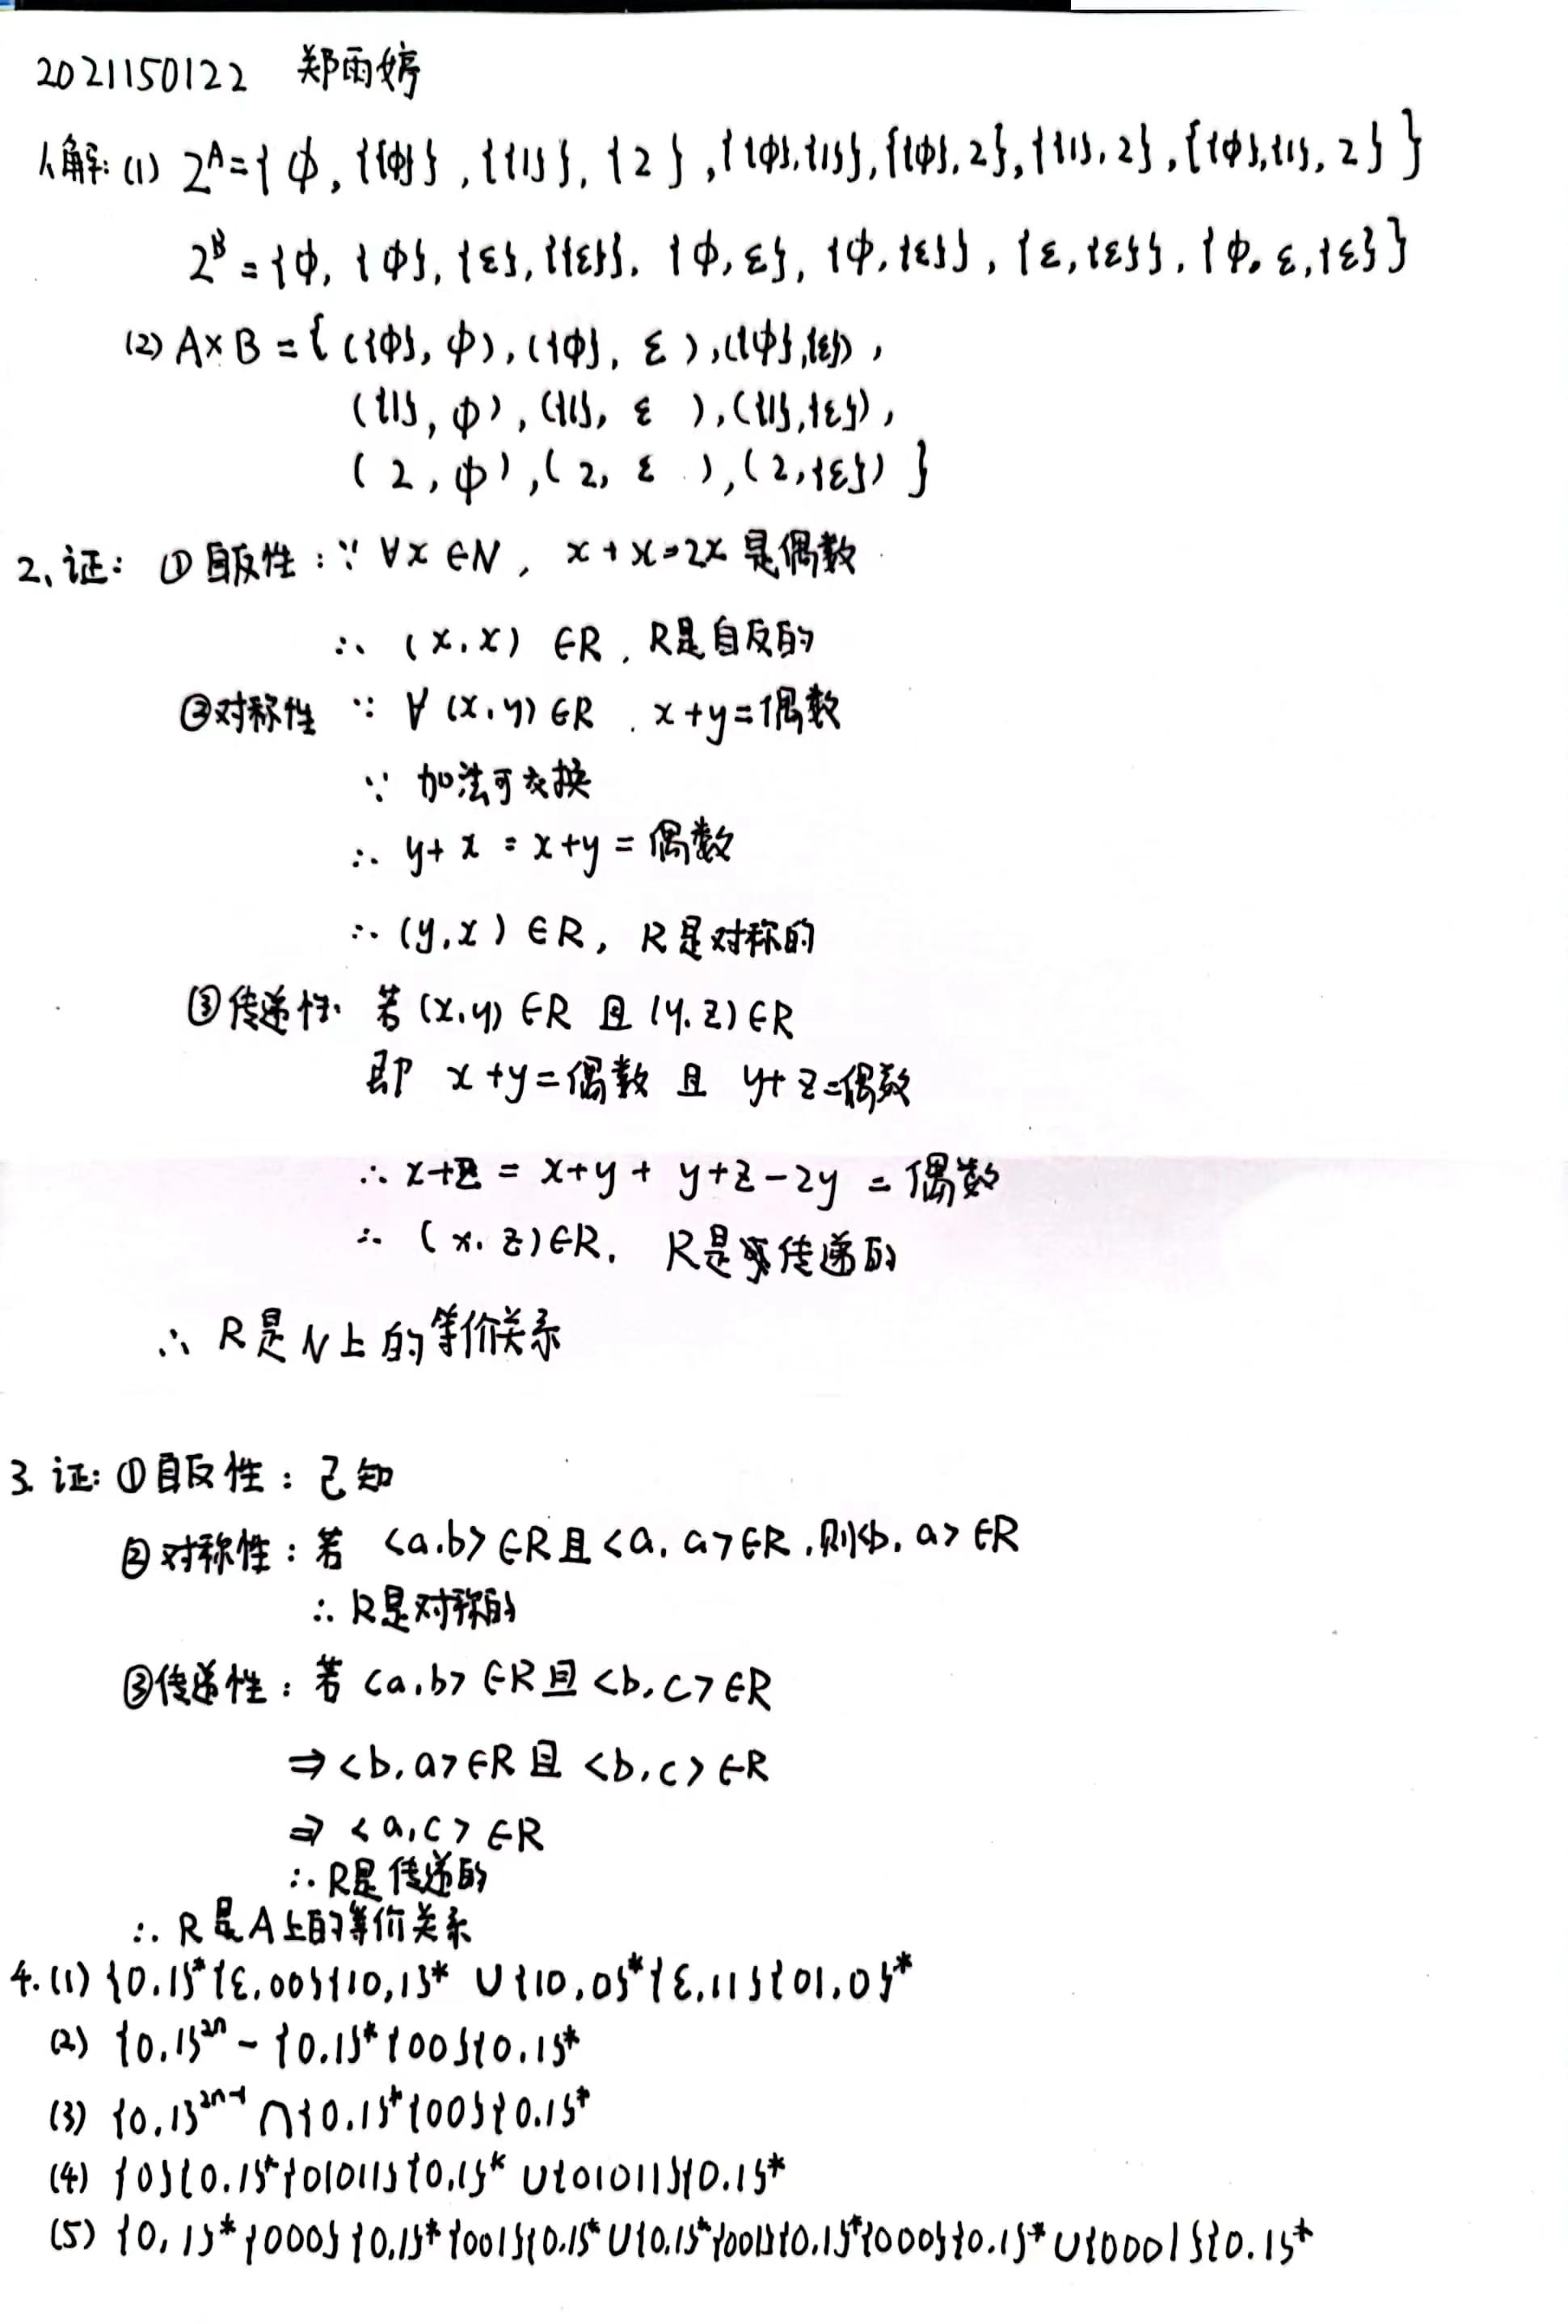 2021150122 郑雨婷
1、解: (1) 2^A={ φ, {{φ}}, {{1}}, {2}, {{φ},{1}}, {{φ},2}, {{1},2}, {{φ},{1},2} }
2^B={φ, {φ}, {ε}, {{ε}}, {φ,ε}, {φ,{ε}}, {ε,{ε}}, {φ,ε,{ε}} }
(2) A×B={ ({φ},φ), ({φ},ε), ({φ},{ε}),
({1},φ), ({1},ε), ({1},{ε}),
(2,φ), (2,ε), (2,{ε}) }
2、证: ①自反性: ∵ ∀x∈N, x+x=2x 是偶数
∴ (x,x)∈R, R是自反的
②对称性 ∵ ∀(x,y)∈R, x+y=偶数
∵ 加法可交换
∴ y+x=x+y=偶数
∴ (y,x)∈R, R是对称的
③传递性: 若(x,y)∈R 且 (y,z)∈R
即 x+y=偶数 且 y+z=偶数
∴ x+z = x+y+y+z-2y = 偶数
∴ (x,z)∈R, R是传递的
∴ R是N上的等价关系
3. 证: ①自反性: 已知
②对称性: 若 <a,b>∈R且<a,a>∈R,则<b,a>∈R
∴ R是对称的
③传递性: 若<a,b>∈R且<b,c>∈R
⇒<b,a>∈R且<b,c>∈R
⇒<a,c>∈R
∴R是传递的
∴ R是A上的等价关系
4. (1) {0,1}*{ε,00}{10,1}* ∪ {10,0}*{ε,11}{01,0}*
(2) {0,1}^2n - {0,1}*{00}{0,1}*
(3) {0,1}^2n-1 ∩ {0,1}*{00}{0,1}*
(4) {0}{0,1}*{01011}{0,1}* ∪ {01011}{0,1}*
(5) {0,1}*{000}{0,1}*{001}{0,1}* ∪ {0,1}*{001}{0,1}*{000}{0,1}* ∪ {0001}{0,1}*